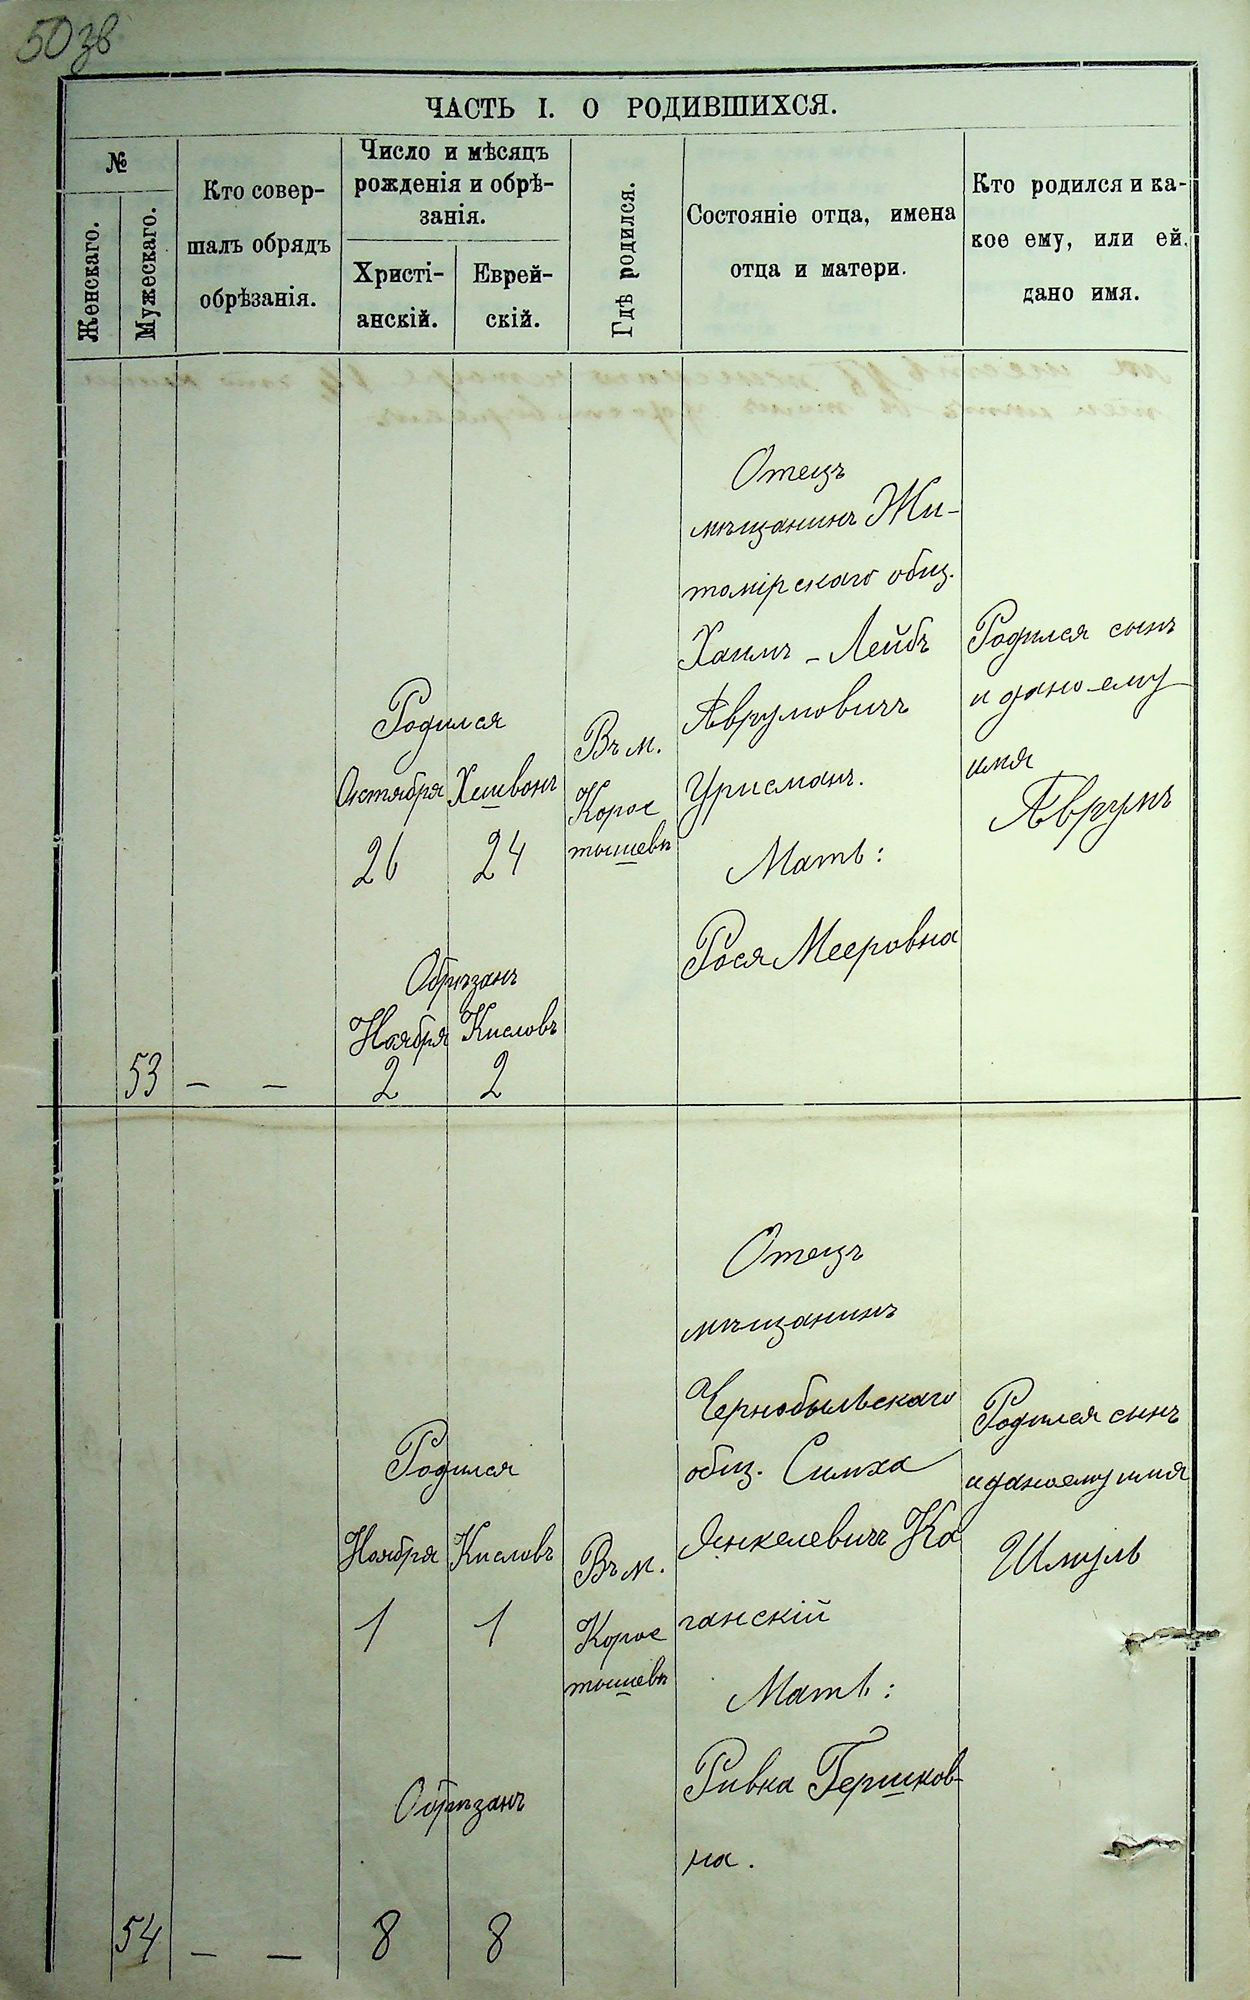 50зв
ЧАСТЬ I. О РОДИВШИХСЯ.
№
Женскаго.
Мужескаго.
Кто совер-
шалъ обрядъ
обрѣзанія.
Число и мѣсяцъ
рожденія и обрѣ-
занія.
Христі-
анскій.
Еврей-
скій.
Гдѣ родился.
Состояніе отца, имена
отца и матери.
Кто родился и ка-
кое ему, или ей,
дано имя.
53
— —
Родился
Октября Хешвонъ
26 24
Обрѣзанъ
Ноября Кисловъ
2 2
Въ м.
Корос
тышевѣ
Отецъ
мѣщанинъ Жи-
томірскаго общ.
Хаимъ - Лейбъ
Аврумовичъ
Урисманъ.
Мать:
Рося Мееровна
Родился сынъ
и дано ему
имя
Аврумъ
54
— —
Родился
Ноября Кисловъ
1 1
Обрѣзанъ
8 8
Въ м.
Корос
тышевѣ
Отецъ
мѣщанинъ
Чернобыльскаго
общ. Симха
Янкелевичъ Ка
ганскій
Мать:
Ривка Гершков-
на.
Родился сынъ
и дано ему имя
Шмуль